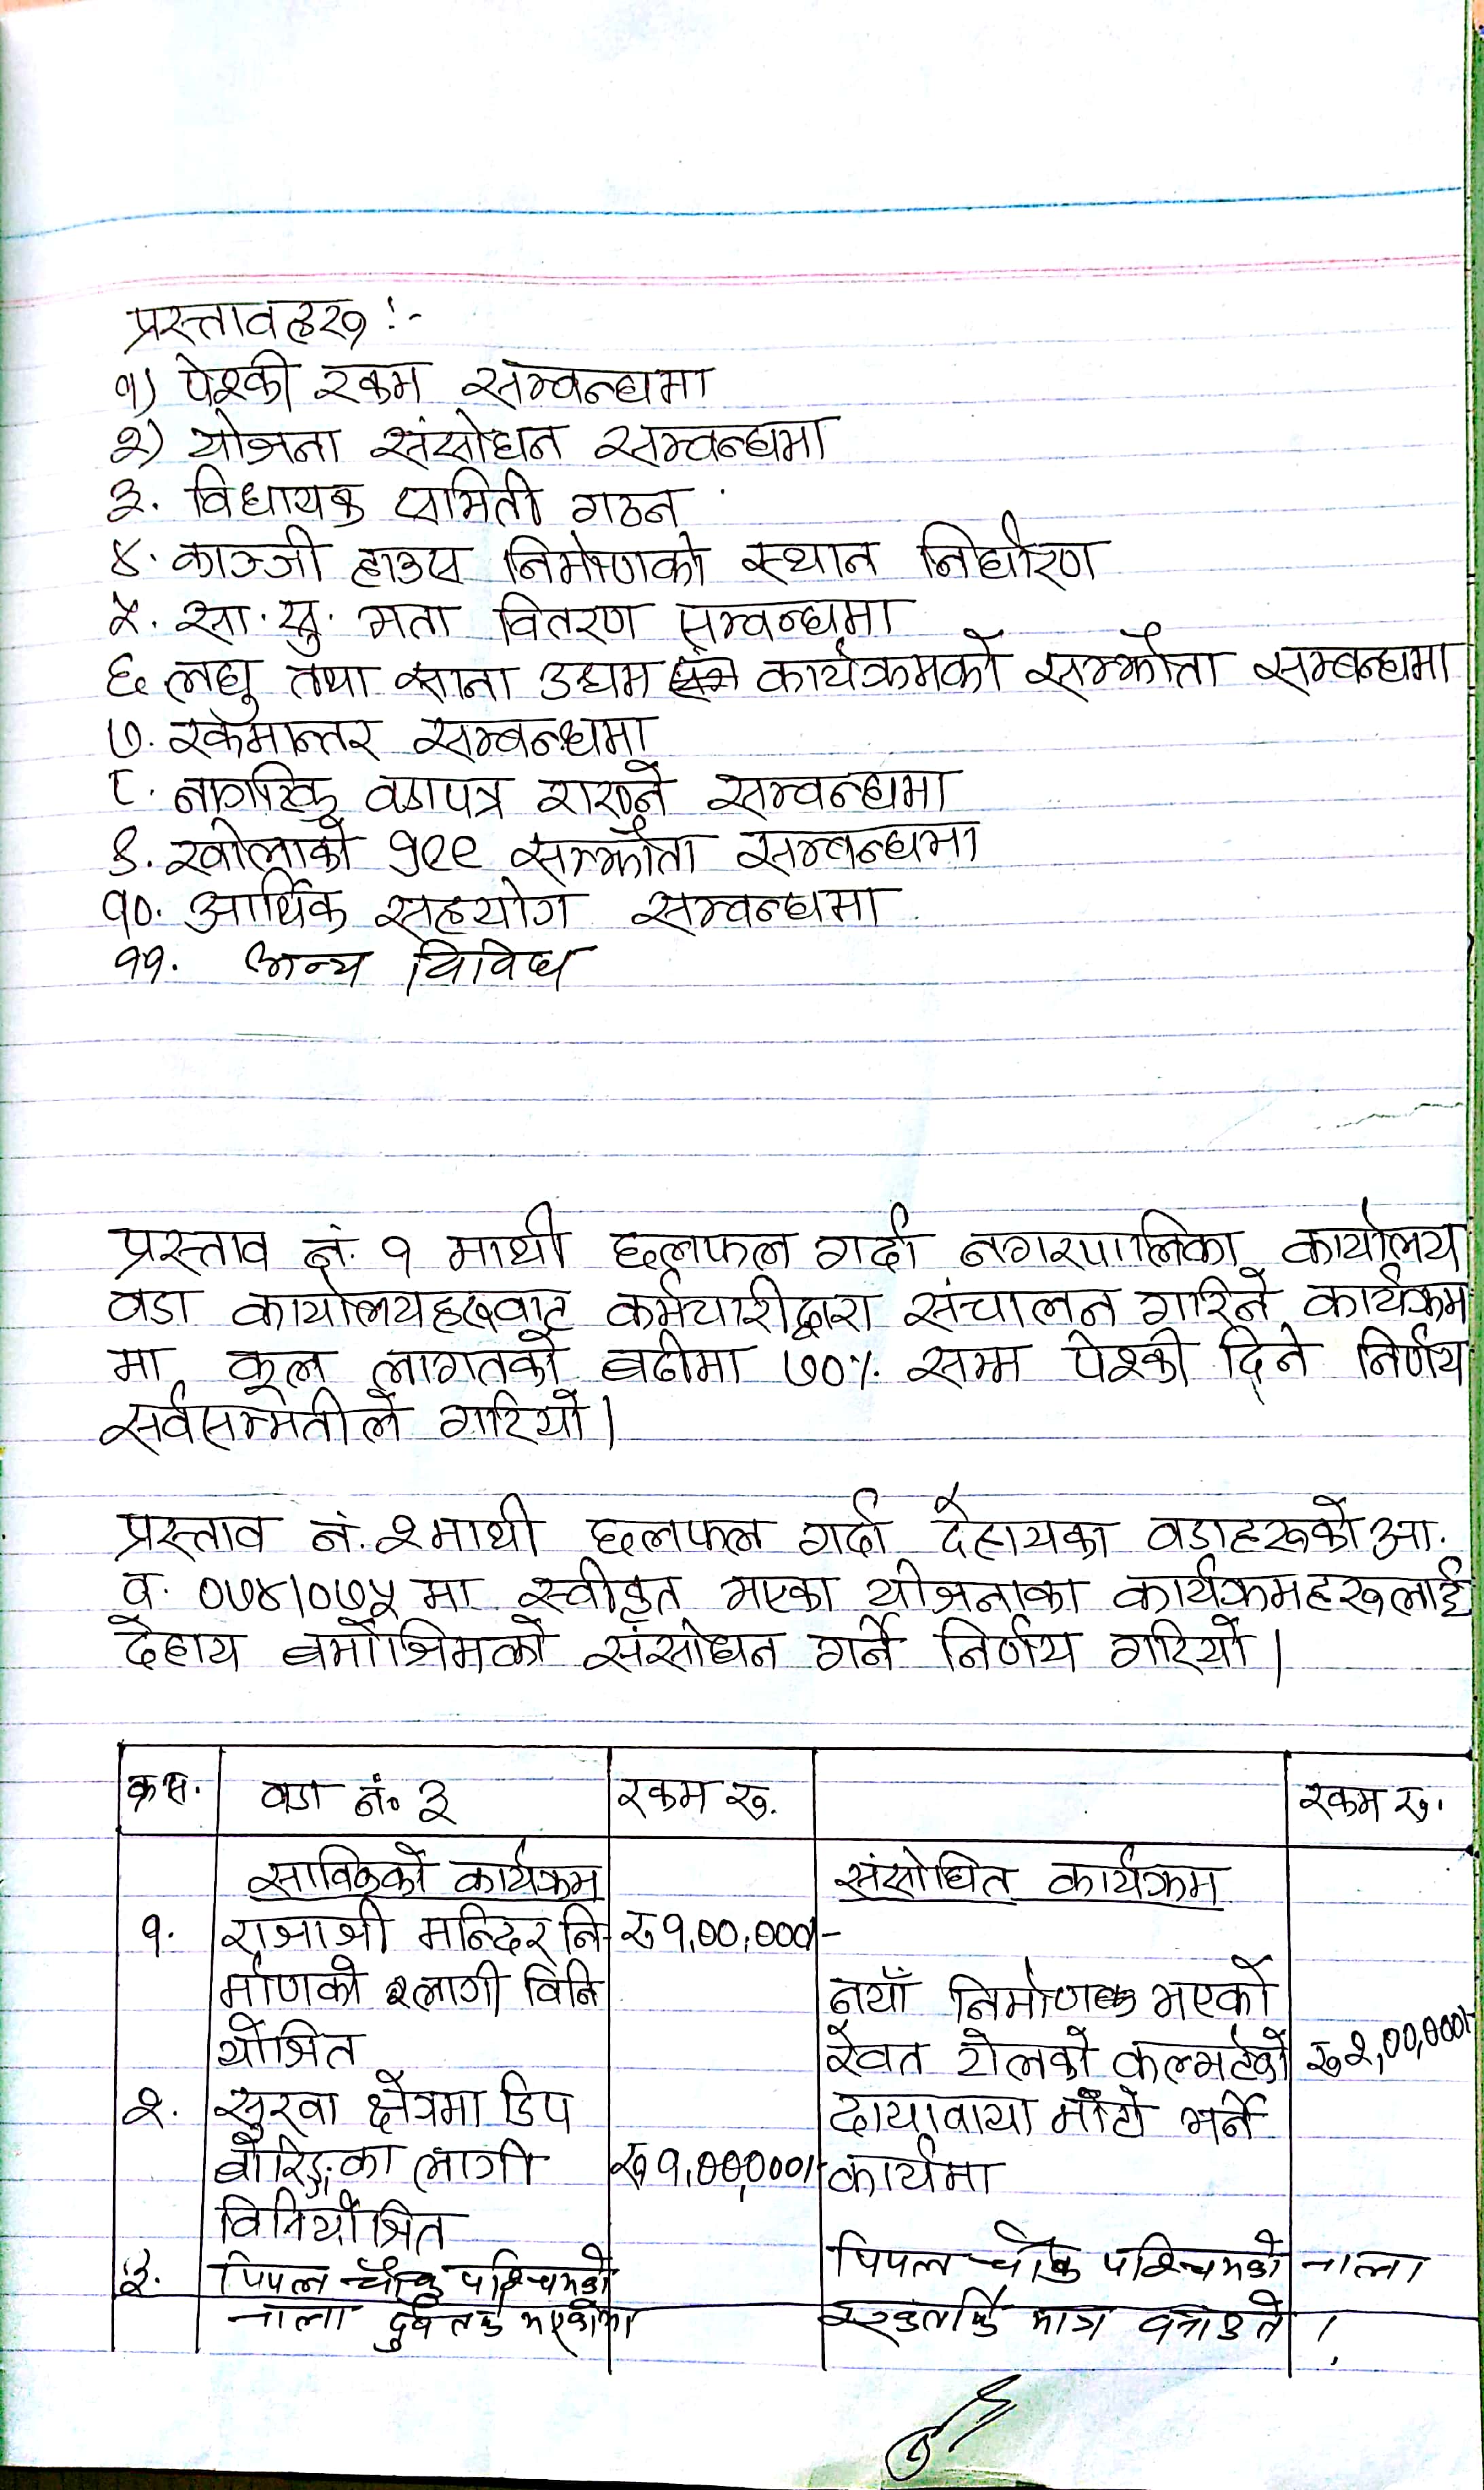 प्रस्तावहरू :-
१) पेश्की रकम सम्वन्धमा
२) योजना संसोधन सम्वन्धमा
३. विधायक समिती गठन
४. काञ्जी हाउस निर्माणको स्थान निर्धारण
५. सा. सु. भत्ता वितरण सम्वन्धमा
६. लघु तथा साना उद्यम कार्यक्रमको सम्झौता सम्बन्धमा
७. रकमान्तर सम्बन्धमा
८. नागरिक वडापत्र राख्ने सम्वन्धमा
९. खोलाको सम्झौता सम्वन्धमा
१०. आर्थिक सहयोग सम्वन्धमा
११. अन्य विविध
प्रस्ताव नं. १ माथी छलफल गर्दा नगरपालिका कार्यालय
वडा कार्यालयहरूवाट कर्मचारीद्वारा संचालन गरिने कार्यक्रम
मा कूल लागतको बढीमा ७०% सम्म पेश्की दिने निर्णय
सर्वसम्मतीले गरियो।
प्रस्ताव नं. २ माथी छलफल गर्दा देहायका वडाहरूको आ.
व. ०७४।०७५ मा स्वीकृत भएका योजनाका कार्यक्रमहरूलाई
देहाय बमोजिमको संसोधन गर्ने निर्णय गरियो।
क्र.स. वडा नं. ३ रकम रु. रकम रु.
साविकको कार्यक्रम संसोधित कार्यक्रम
१. राजाजी मन्दिर नि- रु १,००,०००/-
र्माणको लागी विनि नयाँ निर्माण भएको
योजित रेवत टोलको कल्भर्टको रु २,००,०००/-
२. सुख्वा क्षेत्रमा डिप दायावाया माटो भर्ने
बोरिङ्गका लागी रु १,००,०००/- कार्यमा
विनियोजित
३. पिपल चौक पश्चिमको पिपल चौक पश्चिमको नाला
नाला दुवै तर्फ भएकोमा एकतर्फ मात्र वनाउने।